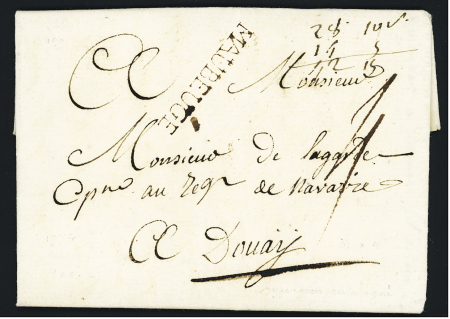 28 10 s
14 5
42 15
A
MAUBEUGE
Monsieur
Monsieur De Lagarde
Cpne au Regt de Navarre
A Douay